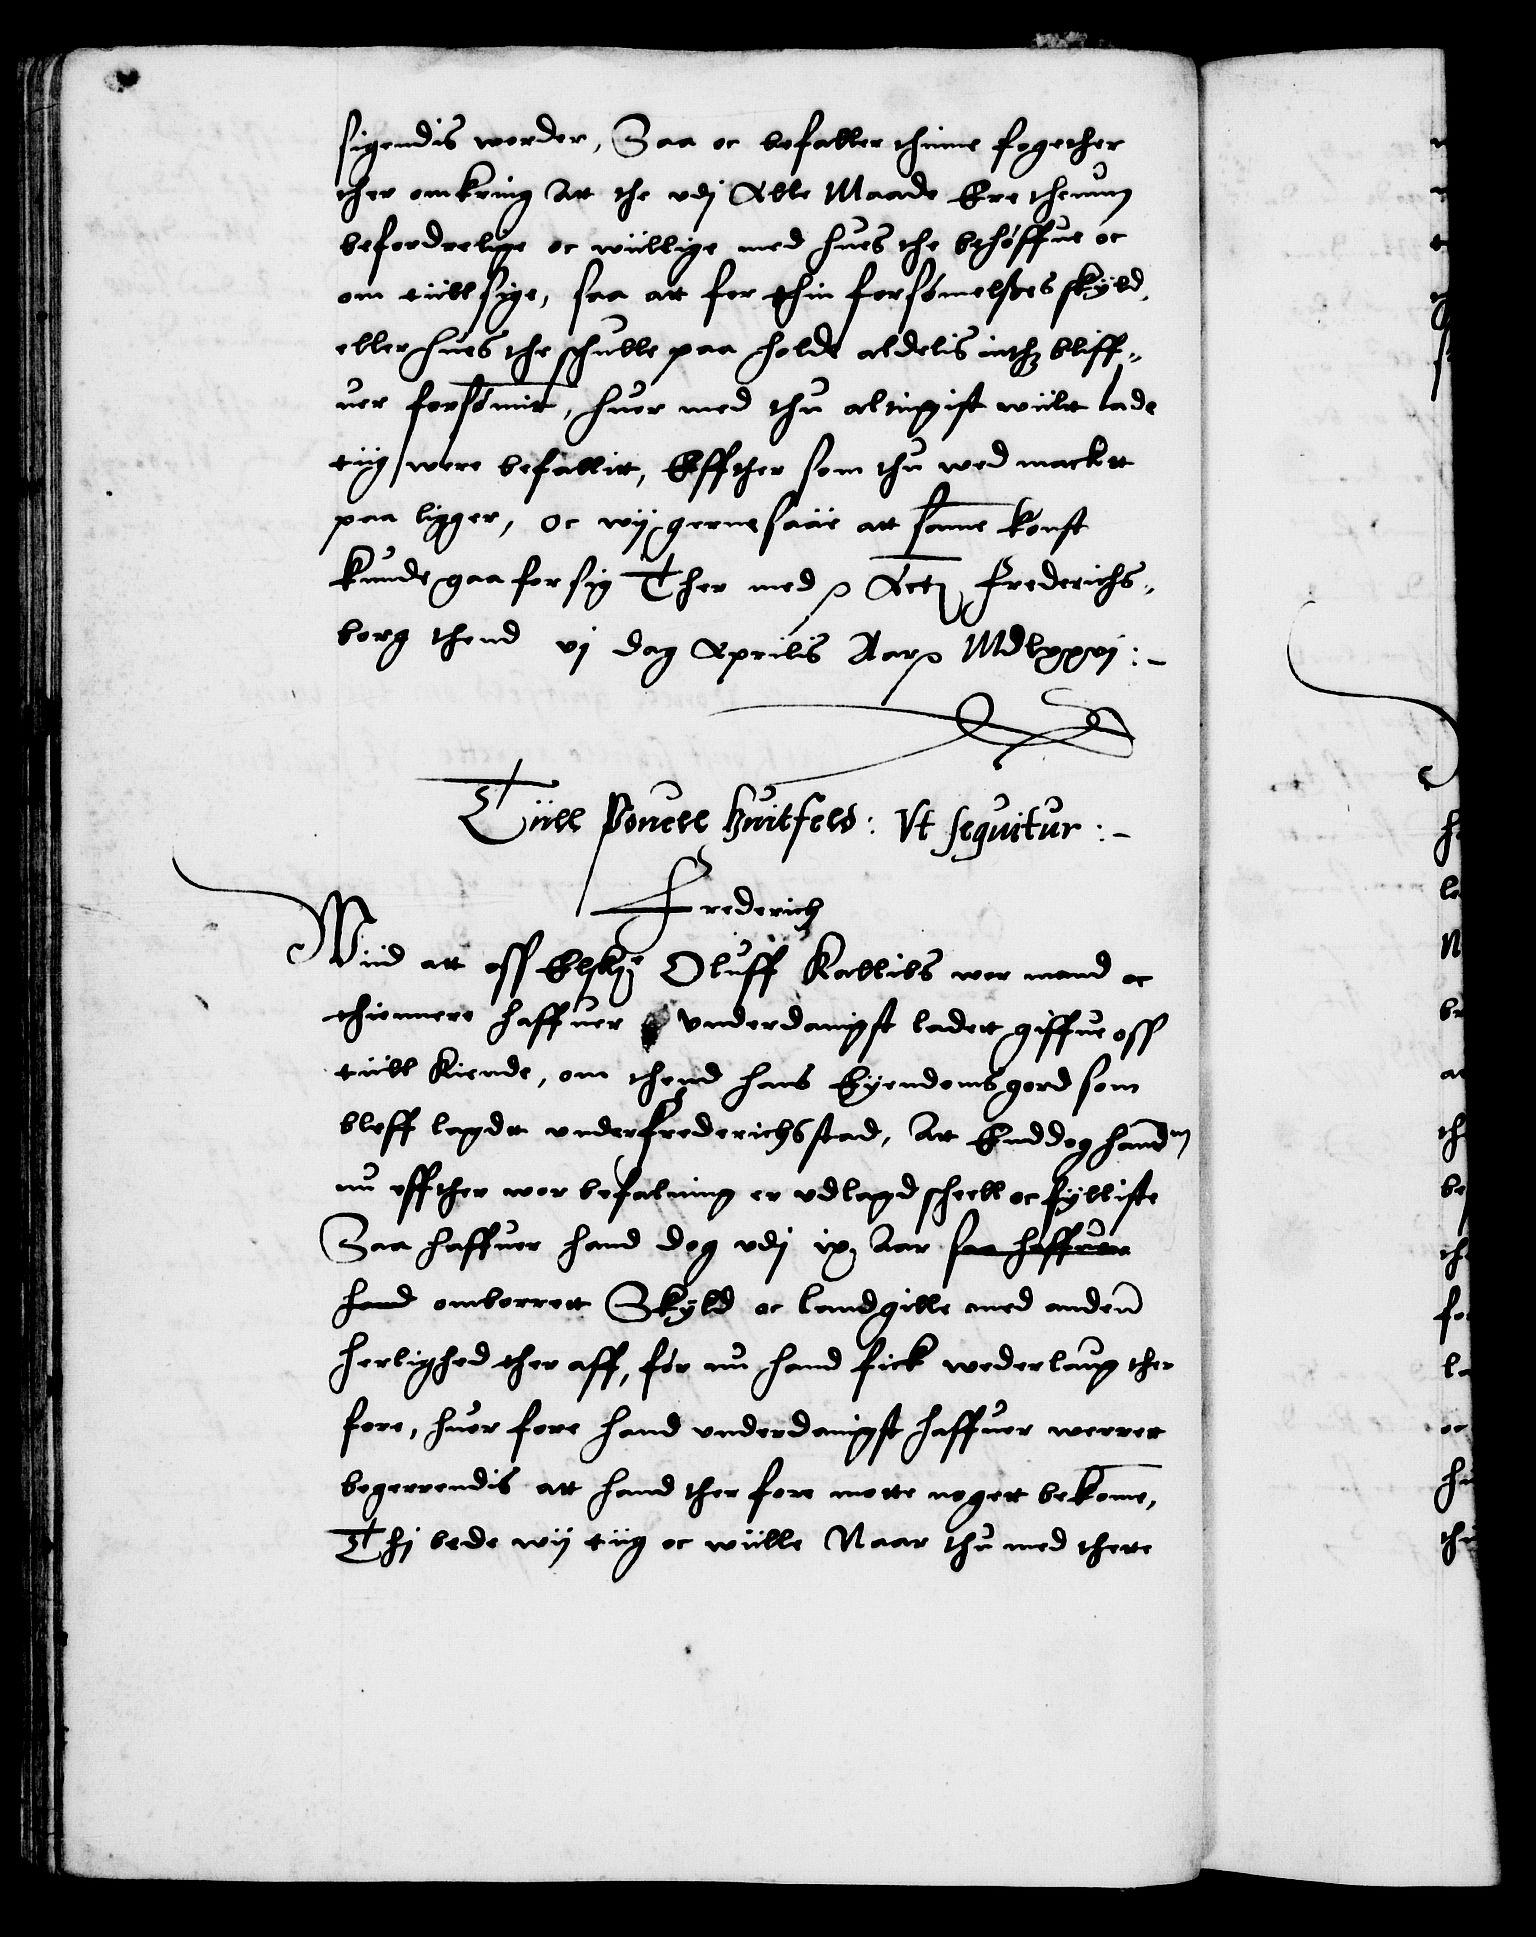 sigendis worder, Saa oc befaller thinne fogether
ther omkring Att the vdj Alle Maade Ere thenum
befordrelige oc wiillige med hues the behøffue oc
om tiill sige, saa att for thin forsømelses skyld,
eller hues the schulle paa holde aldelis inthz bliff-
uer forsømit, huer med thu altingist wiilt lade
tiig were befallitt, Effther som thu wed mackett
paa ligger, Oc wij gerne saae att same konst
kunde gaa for sig Ther med p Actz Frederichs-
borg thend vj dag Aprilis Aar p Mdlxxvj :-
Tiill Pouell huitfeld: Vt sequitur :-
Frederich
Wiid att oss Elskz Oluff Kalliils wor mand oc
thiennere haffuer vnderdanigst ladett giffue oss
tiill Kiende, om thend hans Eyendoms gord som
bleff lagdt vnder Frederichsstad, Att Enddog hand
nu effther wor befalning er vdlagd scheell oc fylliste
Saa haffuer hand dog vdj ix Aar saa haffuer
hand omborrett Skyld oc landgille med anden
herlighed ther aff, før nu hand fick wederlaug ther
fore, huer fore hand vnderdanigst haffuer werret
begerrendis att hand ther fore motte nogett bekome,
Thj bede wij tiig oc wiille Naar thu med there